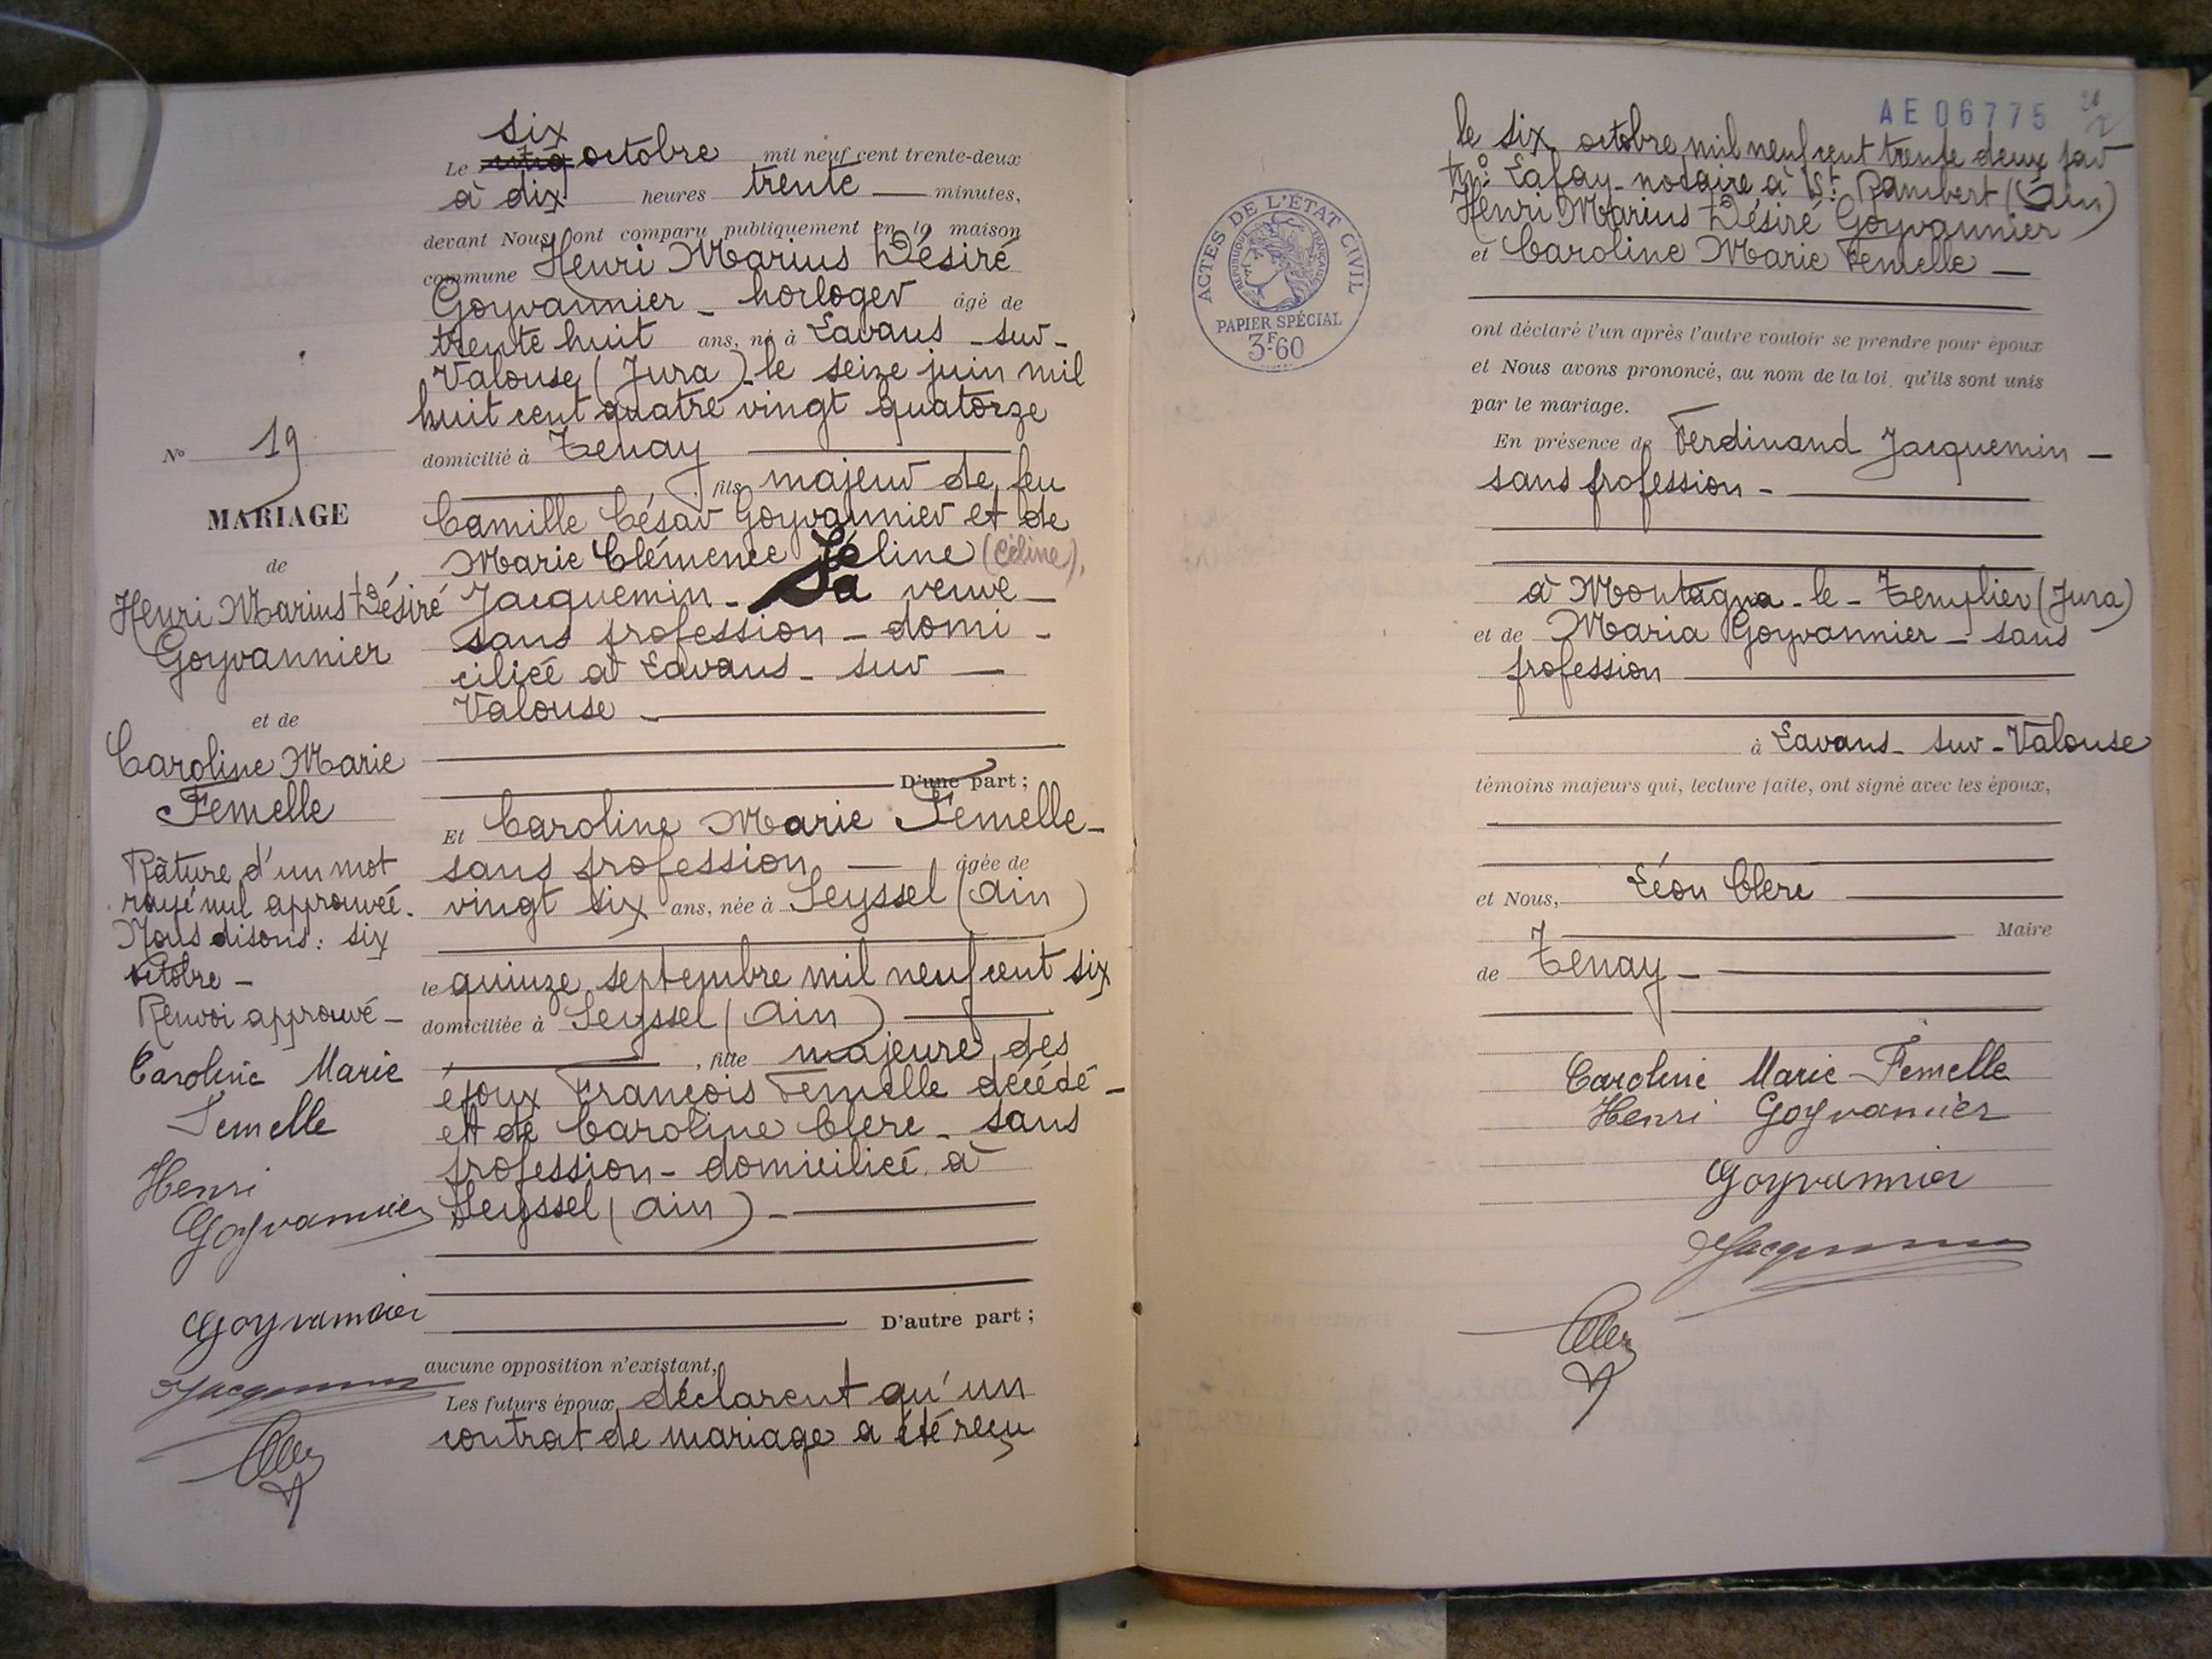 N° 19
MARIAGE
de
Henri Marius Désiré
Goyvannier
et de
Caroline Marie
Femelle
Râture d'un mot
rayé nul approuvée.
Nous disons : six
octobre _
Renvoi approuvé _
Caroline Marie
Femelle
Henri
Goyvannier
Goyvannier
Jacquemin
Clerc
six
Le cinq octobre mil neuf cent trente-deux
à dix heures trente minutes,
devant Nous ont comparu publiquement en la maison
commune Henri Marius Désiré
Goyvannier _ horloger âgé de
trente huit ans, né à Lavans _ sur _
Valouse (Jura) le seize juin mil
huit cent quatre vingt quatorze
domicilié à Tenay
, fils majeur de feu
Camille César Goyvannier et de
Marie Clémence Séline (Céline),
Jacquemin _ Sa veuve _
sans profession _ domi _
ciliée à Lavans _ sur _
Valouse _
D'une part ;
Et Caroline Marie Femelle _
sans profession _ âgée de
vingt six ans, née à Seyssel (Ain)
le quinze septembre mil neuf cent six
domiciliée à Seyssel (Ain)
, fille majeure des
époux François Femelle décédé _
et de Caroline Clerc _ sans
profession _ domiciliée à
Seyssel (Ain) _
D'autre part ;
aucune opposition n'existant,
Les futurs époux déclarent qu'un
contrat de mariage a été reçu
AE 06775
le six octobre mil neuf cent trente deux par
Lafay _ notaire à St. Rambert (Ain)
Henri Marius Désiré Goyvannier
et Caroline Marie Femelle _
ACTES DE L'ÉTAT CIVIL
RÉPUBLIQUE FRANÇAISE
PAPIER SPÉCIAL
3F.60
ont déclaré l'un après l'autre vouloir se prendre pour époux
et Nous avons prononcé, au nom de la loi, qu'ils sont unis
par le mariage.
En présence de Ferdinand Jacquemin _
sans profession _
à Montagna _ le _ Templier (Jura)
et de Maria Goyvannier _ sans
profession
à Lavans _ sur _ Valouse
témoins majeurs qui, lecture faite, ont signé avec les époux,
et Nous, Léon Clerc
Maire
de Tenay _
Caroline Marie Femelle
Henri Goyvannier
Goyvannier
Jacquemin
Clerc